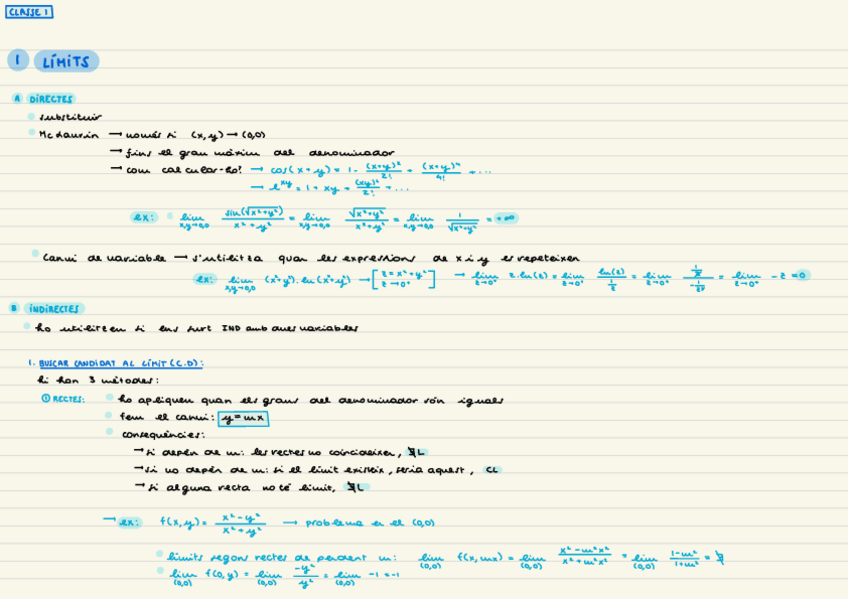 CLASSE 1
1 LÍMITS
A DIRECTES
substituir
Mc Laurin → només si (x,y) → (0,0)
→ fins el grau màxim del denominador
→ com calcular-ho? → cos(x+y) = 1 - (x+y)²/2! + (x+y)⁴/4! + ...
→ e^xy = 1 + xy + (xy)²/2! + ...
ex: lim x,y→0,0 sin(√x²+y²)/x²+y² = lim x,y→0,0 √x²+y²/x²+y² = lim x,y→0,0 1/√x²+y² = +∞
Canvi de variable → s'utilitza quan les expressions de x i y es repeteixen
ex: lim x,y→0,0 (x²+y²)·ln(x²+y²) → [z=x²+y² z→0⁺] → lim z→0⁺ z·ln(z) = lim z→0⁺ ln(z)/(1/z) = lim z→0⁺ (1/z)/(-1/z²) = lim z→0⁺ -z = 0
B INDIRECTES
ho utilitzem si ens surt IND amb dues variables
1. BUSCAR CANDIDAT AL LÍMIT (C.D):
hi han 3 mètodes:
① RECTES: ho apliquem quan els graus del denominador són iguals
fem el canvi: y=mx
conseqüències:
→ si depèn de m: les rectes no coincideixen, ∄L
→ si no depèn de m: si el límit existeix, seria aquest, CL
→ si alguna recta no té límit, ∄L
→ ex: f(x,y) = x²-y²/x²+y² → problema en el (0,0)
límits segons rectes de pendent m: lim (0,0) f(x,mx) = lim (0,0) x²-m²x²/x²+m²x² = lim (0,0) 1-m²/1+m² = ∄
lim (0,0) f(0,y) = lim (0,0) -y²/y² = lim (0,0) -1 = -1